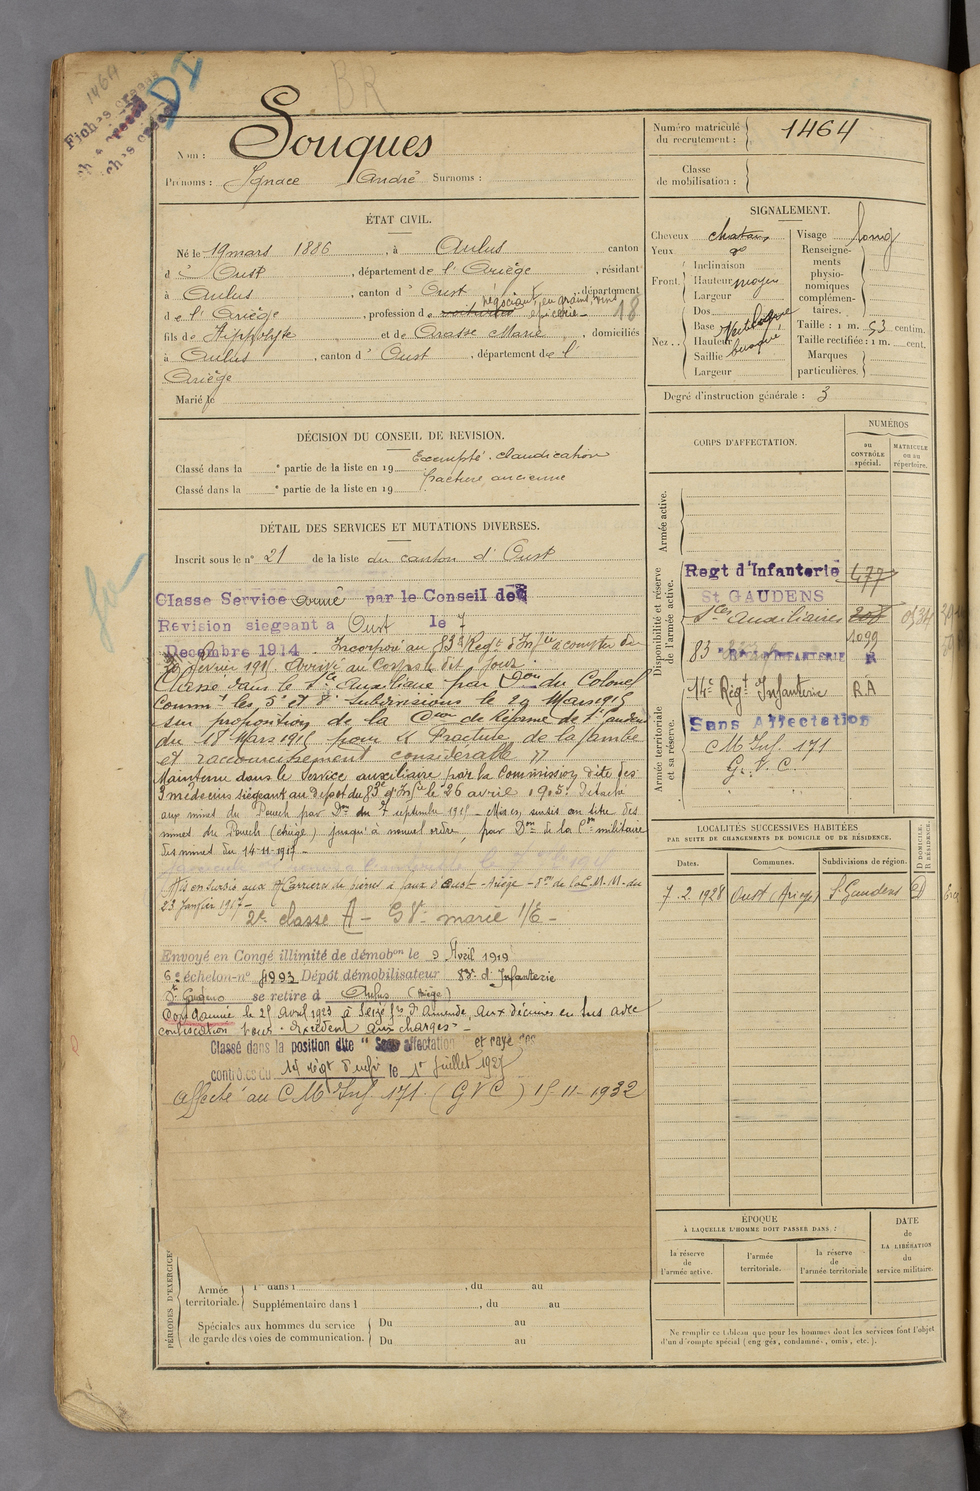 146A
Fiches
DI
BR
Nom : Souques
Prénoms : Ignace André Surnoms :
Numéro matricule du recrutement : 1464
Classe de mobilisation :
ÉTAT CIVIL.
Né le 19 mars 1886, à Aulus canton
d' Oust, département de l'Ariège, résidant
à Aulus, canton d' Oust, département
négociant en grains, vins
de l'Ariège, profession de voiturier épicerie 18
fils de Hippolyte et de Arasse Marie, domiciliés
à Aulus, canton d' Oust, département de l'
Ariège
Marié le
SIGNALEMENT.
Cheveux chatains
Yeux
Front. Inclinaison
Hauteur moyen
Largeur
Nez.. Dos
Base
Hauteur
Saillie busqué
Largeur
Visage long
Renseignements physionomiques complémentaires.
Taille : 1 m. 53 centim.
Taille rectifiée : 1 m. cent.
Marques particulières.
Degré d'instruction générale : 3
DÉCISION DU CONSEIL DE REVISION.
Exempté. claudication
Classé dans la e partie de la liste en 19
fracture ancienne
Classé dans la e partie de la liste en 19
DÉTAIL DES SERVICES ET MUTATIONS DIVERSES.
Inscrit sous le n° 21 de la liste du canton d'Oust
Classe Service armé par le Conseil de
Revision siegeant a Oust le 7
Decembre 1914. Incorporé au 83e Régt d'Infie à compter du
février 1915 Arrivé au Corps le dit jour.
Classé dans le Sce Auxiliaire par Don du Colonel
Commt les 5e et 8e Subdivisions le 29 Mars 1915
sur proposition de la Con de Réforme de St Gaudens
du 18 Mars 1915 pour " Fracture de la jambe
et raccourcissement considérable "
Maintenu dans le Service auxiliaire par la Commission dite des
3 médecins siégeant au dépot du 83e d'Infie le 26 avril 1915. Détaché
aux mines du Pouech par Don du 7 septembre 1915 - Mis en sursis au titre des
mines du Pouech (Ariège) jusqu'à nouvel ordre, par Don de la Con militaire
des mines du 14-11-1915 -
Mis en sursis aux Carrières de pierres à faux d'Oust - Ariège - Don de la C.M.M. du
23 janvier 1917 -
2e classe A - GVe marie 1/E -
Envoyé en Congé illimité de démobon le 9 Avril 1919
6e échelon-n° 4993 Dépôt démobilisateur 83e d'Infanterie
St Gaudens se retire à Aulus (Ariège)
Condamné le 25 avril 1923 à Seize frs d'Amende, aux décimes en sus avec
confiscation pour "Excédent aux charges" -
Classé dans la position dite "Sans affectation" et rayé des
contrôles du 14e régt d'infie le 1er juillet 1927
affecté au C M Inf. 171 (G V C) 15-11-1932
CORPS D'AFFECTATION.
NUMÉROS
au CONTRÔLE spécial.
MATRICULE ou au répertoire.
Armée active.
Disponibilité et réserve de l'armée active.
Regt d'Infanterie 477
St GAUDENS
Sces Auxiliaires 208
1099
83 INFANTERIE R
Armée territoriale et sa réserve.
14e Régt Infanterie R.A
Sans Affectation
C M Inf. 171
G. V. C.
LOCALITÉS SUCCESSIVES HABITÉES
PAR SUITE DE CHANGEMENTS DE DOMICILE OU DE RÉSIDENCE.
Dates. Communes. Subdivisions de région. D DOMICILE. R RÉSIDENCE.
7.2.1928 Oust (Ariège) St Gaudens D
ÉPOQUE
À LAQUELLE L'HOMME DOIT PASSER DANS :
la réserve de l'armée active.
l'armée territoriale.
la réserve de l'armée territoriale
DATE de LA LIBÉRATION du service militaire.
PÉRIODES D'EXERCICES
Armée territoriale. 1re dans l , du au
Supplémentaire dans l , du au
Spéciales aux hommes du service Du au
de garde des voies de communication. Du au
Ne remplir ce tableau que pour les hommes dont les services font l'objet
d'un décompte spécial (engagés, condamnés, omis, etc.).